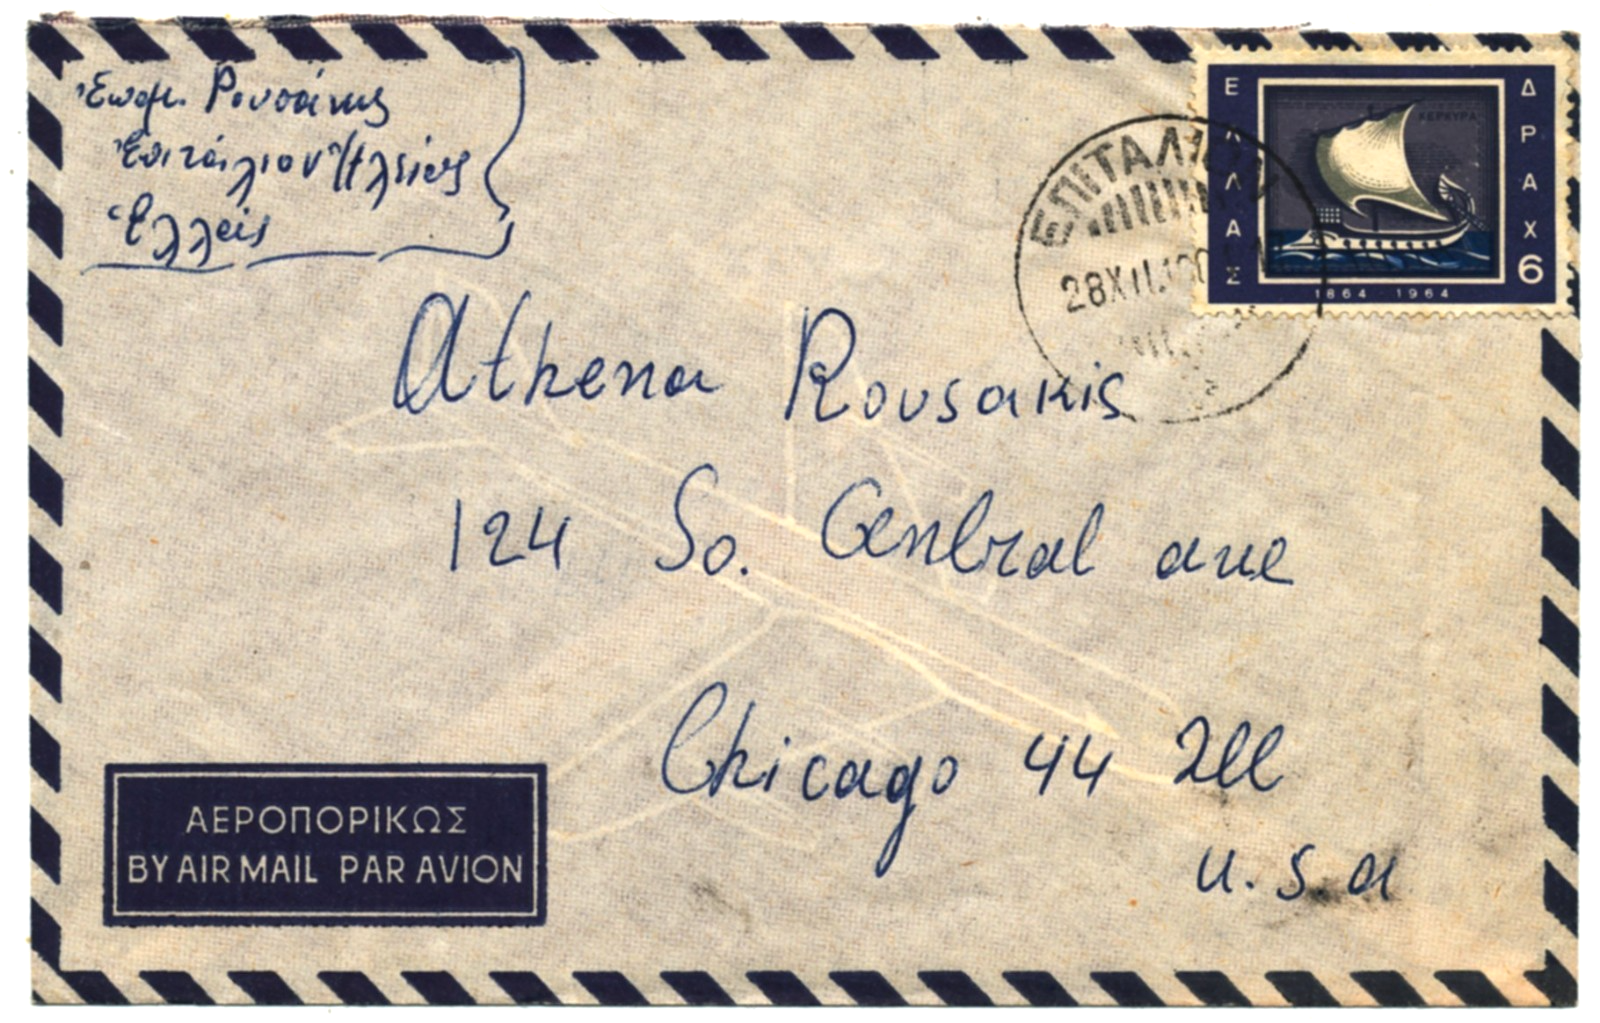 Ρουσάκης
Ἐπιτάλιον Ἠλείας
Ἑλλάς
ΕΛΛΑΣ
ΔΡΑΧ
6
ΚΕΡΚΥΡΑ
1864 - 1964
ΕΠΙΤΑΛΙΟΝ
28 XII
Athena Rousakis
124 So. Central ave
Chicago 44 Ill
U.S.A
ΑΕΡΟΠΟΡΙΚΩΣ
BY AIR MAIL PAR AVION